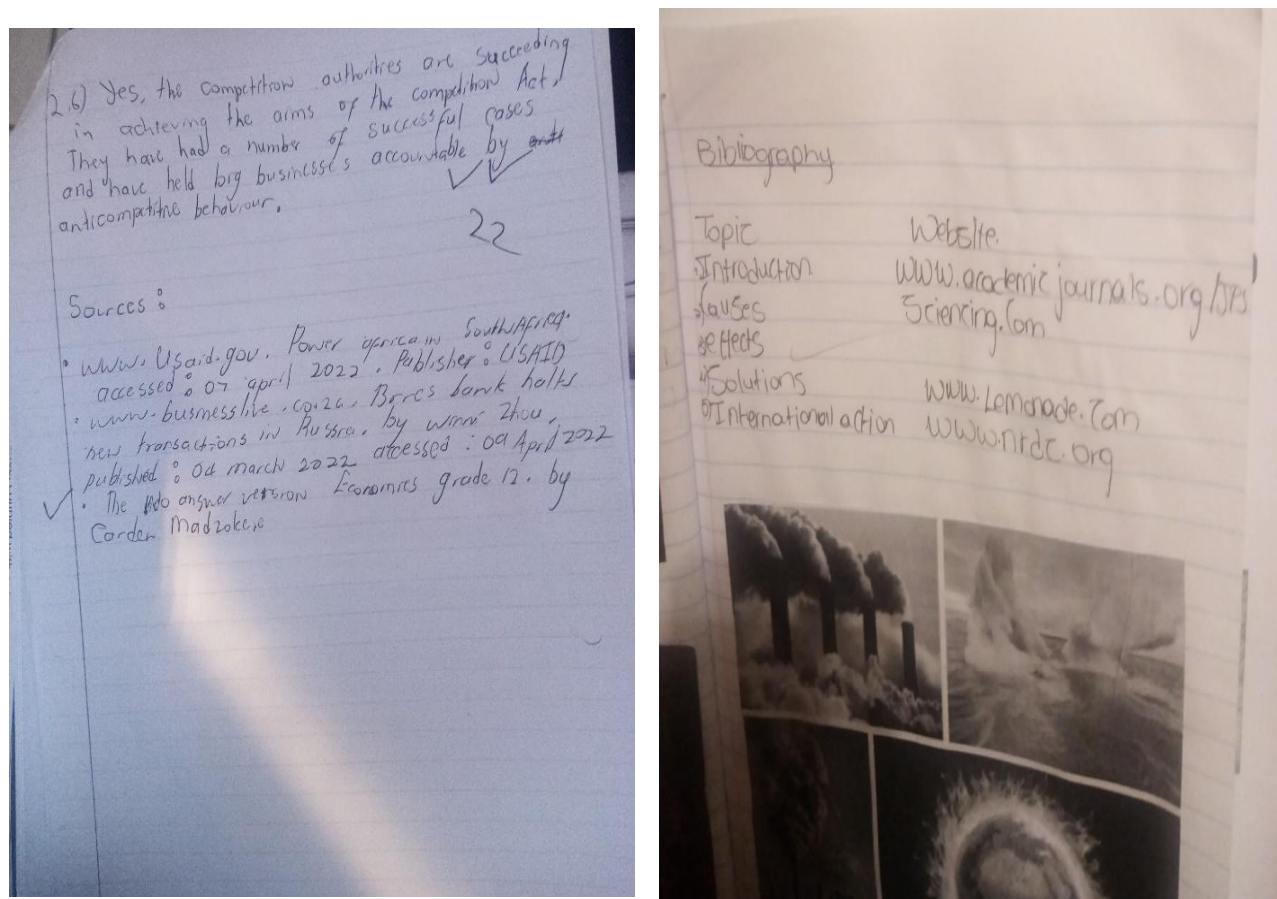 2.6) Yes, the competition authorities are succeeding
in achieving the aims of the competition Act,
They have had a number of successful cases
and have held big businesses accountable by
anticompetitive behaviour.
22
Sources :
• www.Usaid.gov. Power africa in SouthAfrica.
accessed : 07 april 2022. Publisher : USAID
• www.businesslive.co.za. Brics bank halts
new transactions in Russia. by winni Zhou,
published : 04 march 2022 accessed : 09 April 2022
• The answer version Economics grade 12. by
Corden Madzokere
Bibliography
Topic Website.
Introduction www.academicjournals.org/
Causes Sciencing.Com
effects
Solutions www.Lemonade.Com
International action www.nrdc.org